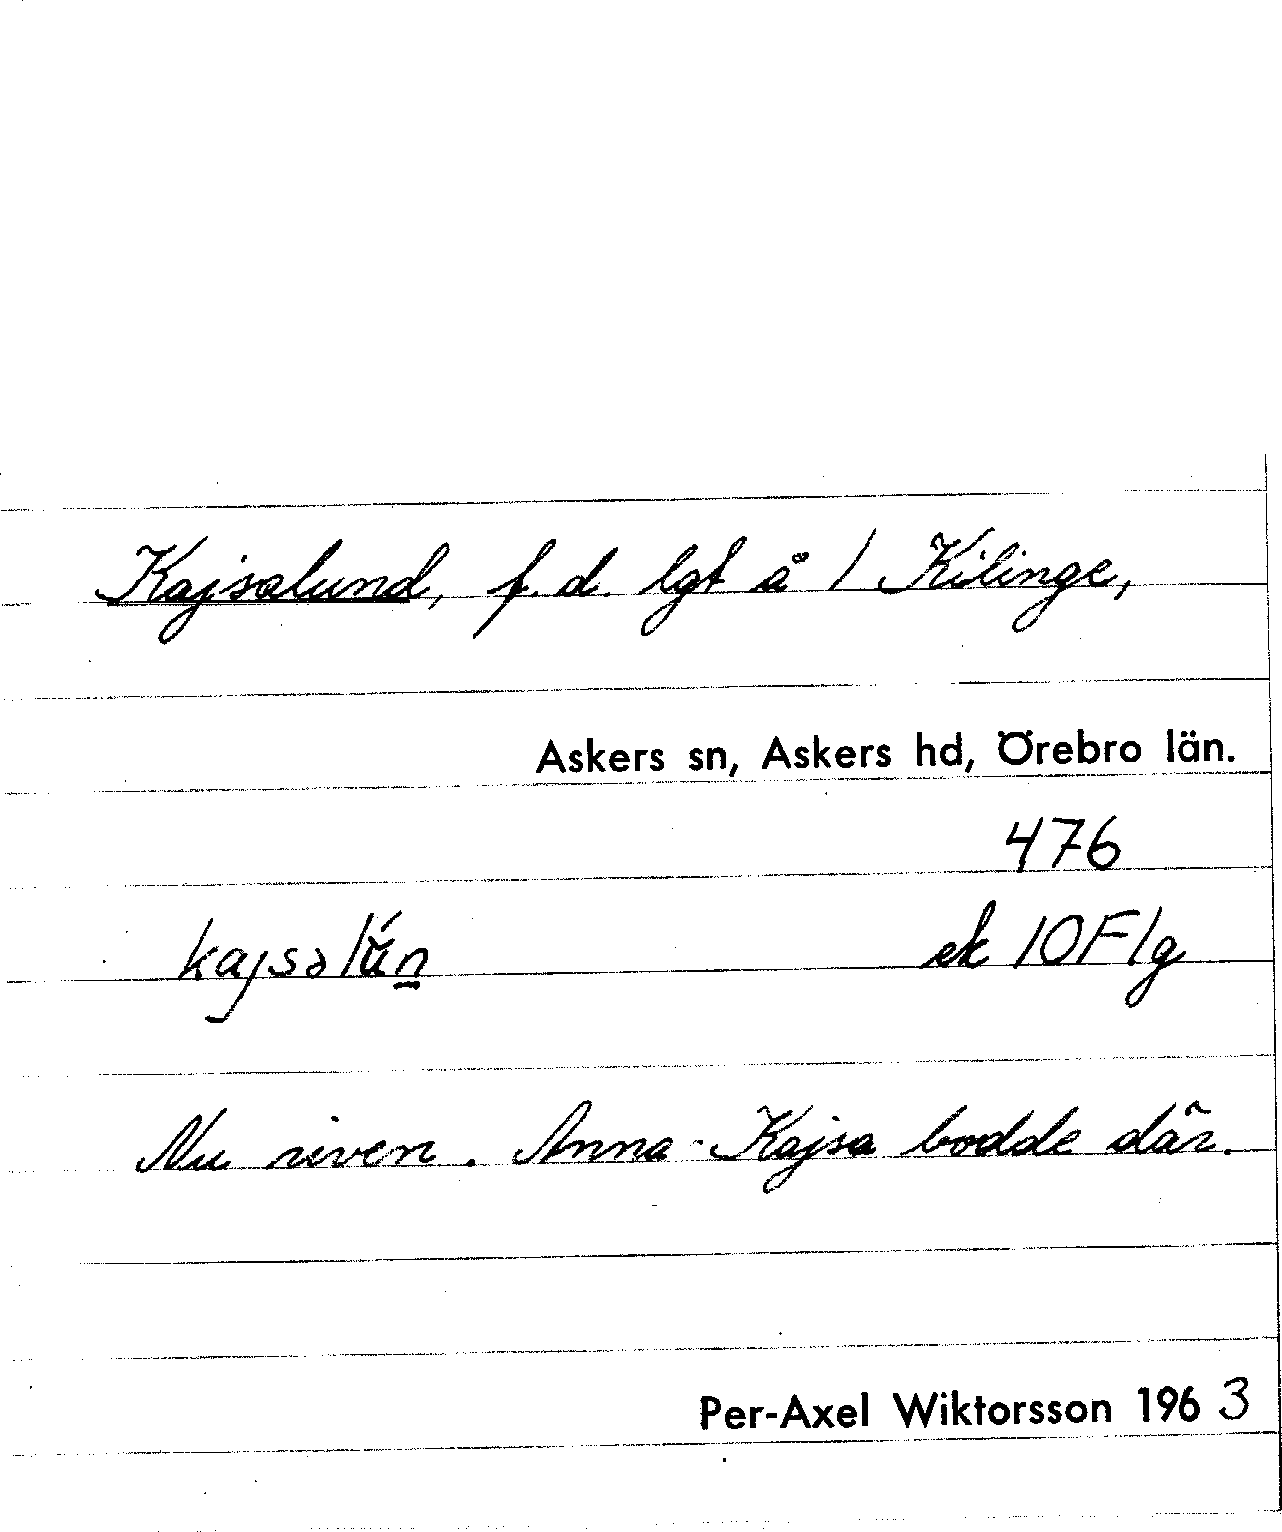 Kajsalund, f. d. lgt å 1 Kilinge,
Askers sn, Askers hd, Örebro län.
476
kajsalún ek 10F1g
Nu riven. Anna-Kajsa bodde där.
Per-Axel Wiktorsson 1963